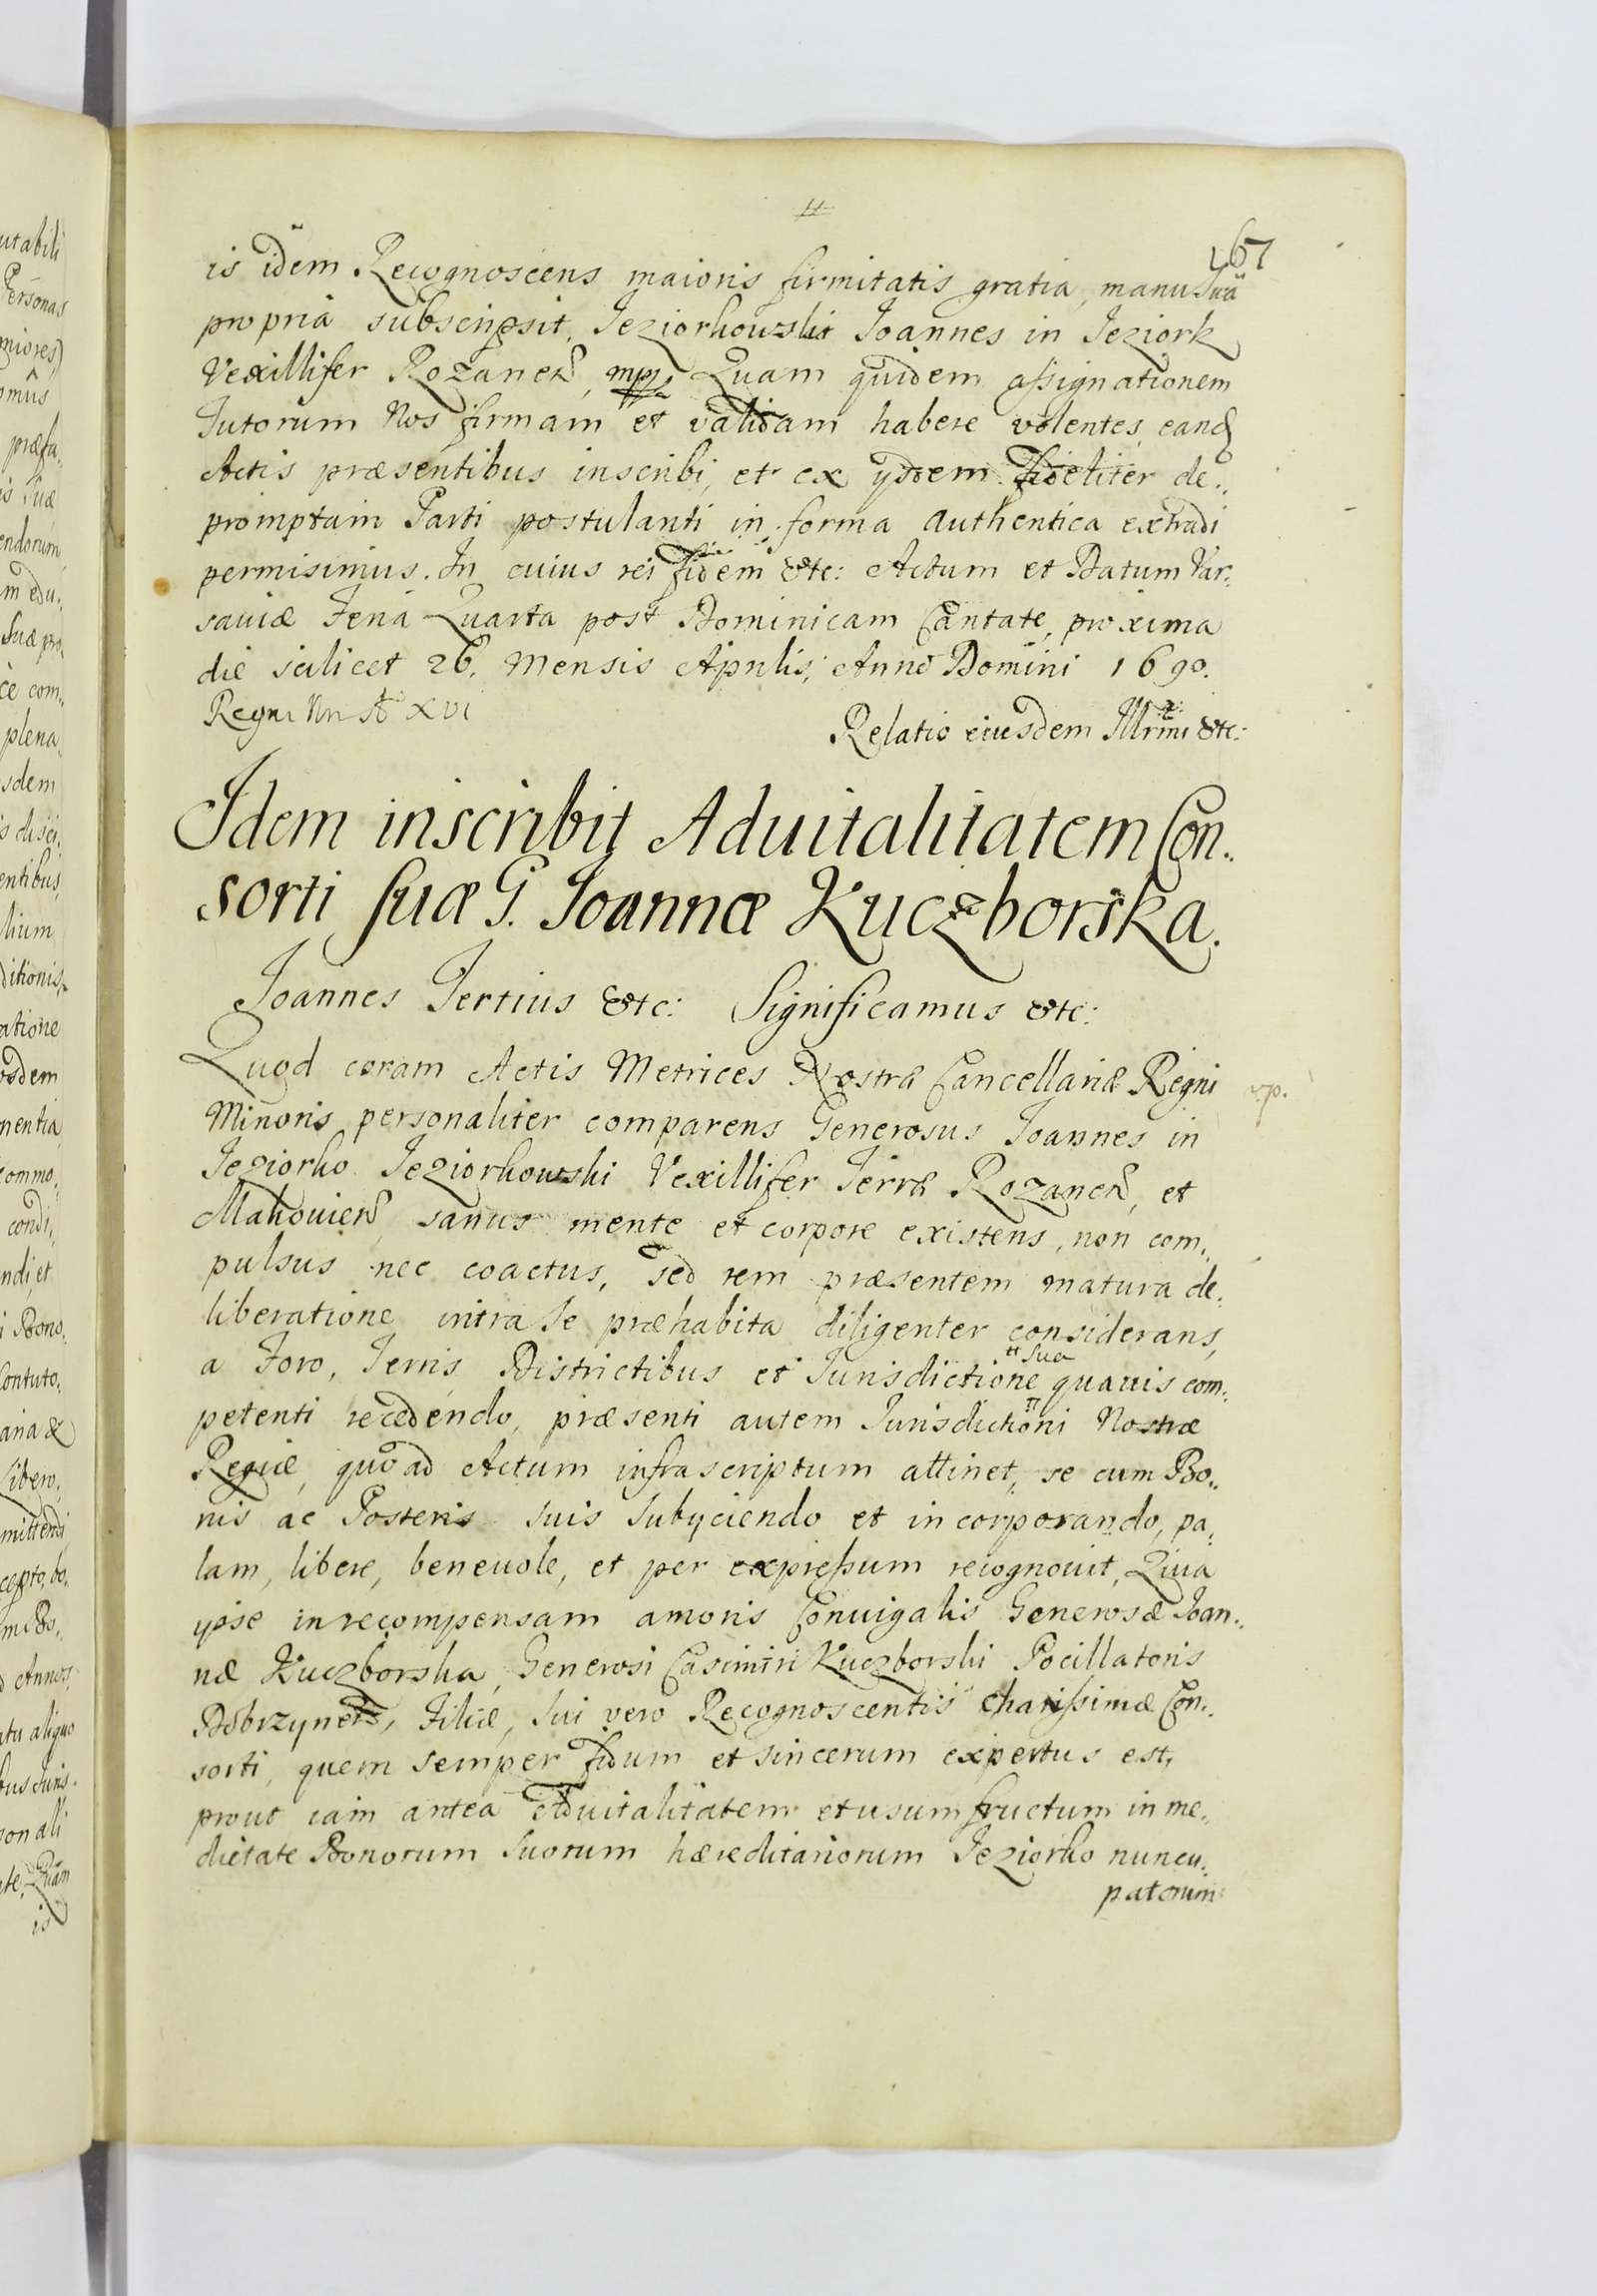 167
is idem Recognoscens maioris firmitatis gratia, manu Sua
propria subscripsit. Jeziorkowski Joannes in Jeziork
Vexillifer Rozanen, mpp. Quam quidem assignationem
Tutorum Nos firmam et validam habere volentes, eand
Actis præsentibus inscribi, et ex ijsdem fideliter de..
promptam Parti postulanti in forma authentica extradi
permisimus. In cuius rei fidem etc: Actum et Datum Var:
saviæ Feria Quarta post Dominicam Cantate, proxima
die scilicet 26. Mensis Aprilis, Anno Domini 1690.
Regni Nri Ao XVI
Relatio eiusdem Illrmi etc:
Idem inscribit Aduitalitatem Con..
sorti suæ G. Joannæ Kuczborska.
Joannes Tertius etc: Significamus etc:
Quod coram Actis Metrices Nostræ Cancellariæ Regni
vp.
Minoris personaliter comparens Generosus Joannes in
Jeziorko Jeziorkowski Vexillifer Terræ Rozanen, et
Makovien, sanus mente et corpore existens, non com..
pulsus nec coactus, sed rem præsentem matura de:
liberatione intra Se præhabita diligenter considerans,
a Foro, Terris Districtibus et Jurisdictione Sua quavis com:
petenti recedendo, præsenti autem Jurisdictioni Nostræ
Regiæ, quo ad Actum infrascriptum attinet, se cum Bo..
nis ac Posteris suis subijciendo et incorporando, pa:
lam, libere, benevole, et per expressum recognovit, Quia
ipse in recompensam amoris Conuigalis Generosæ Joan..
næ Kuczborska, Generosi Casimiri Kuczborski Pocillatoris
Dobrzynen, Filiæ, sui vero Recognoscentis charissimæ Con..
sorti, quem semper fidum et sincerum expertus est,
prout iam antea Aduitalitatem et usumfructum in me..
dietate Bonorum suorum hæreditariorum Jeziorko nuncu:
patorum